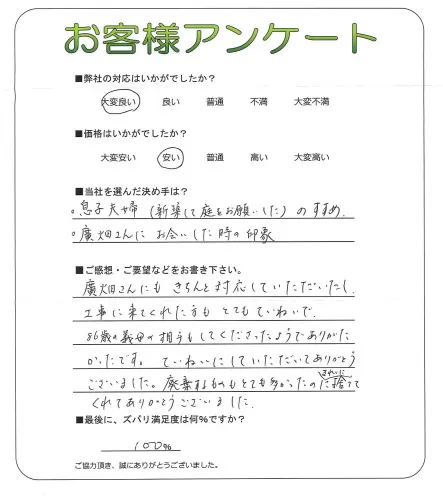 お客様アンケート
■弊社の対応はいかがでしたか？
大変良い 良い 普通 不満 大変不満
■価格はいかがでしたか？
大変安い 安い 普通 高い 大変高い
■当社を選んだ決め手は？
。息子夫婦（新築して庭をお願いした）のすすめ.
。廣畑さんに お会いした時の印象
■ご感想・ご要望などをお書き下さい。
廣畑さんにも きちんと対応していただいたし.
工事に来てくれた方も とてもていねいで.
86歳の義母の相手もしてくださったようでありがた
かったです。ていねいにしていただいてありがとう
ございました。廃棄するものもとても多かったのに きれいに 捨てて
くれてありがとうございました.
■最後に、ズバリ満足度は何%ですか？
100%
ご協力頂き、誠にありがとうございました。